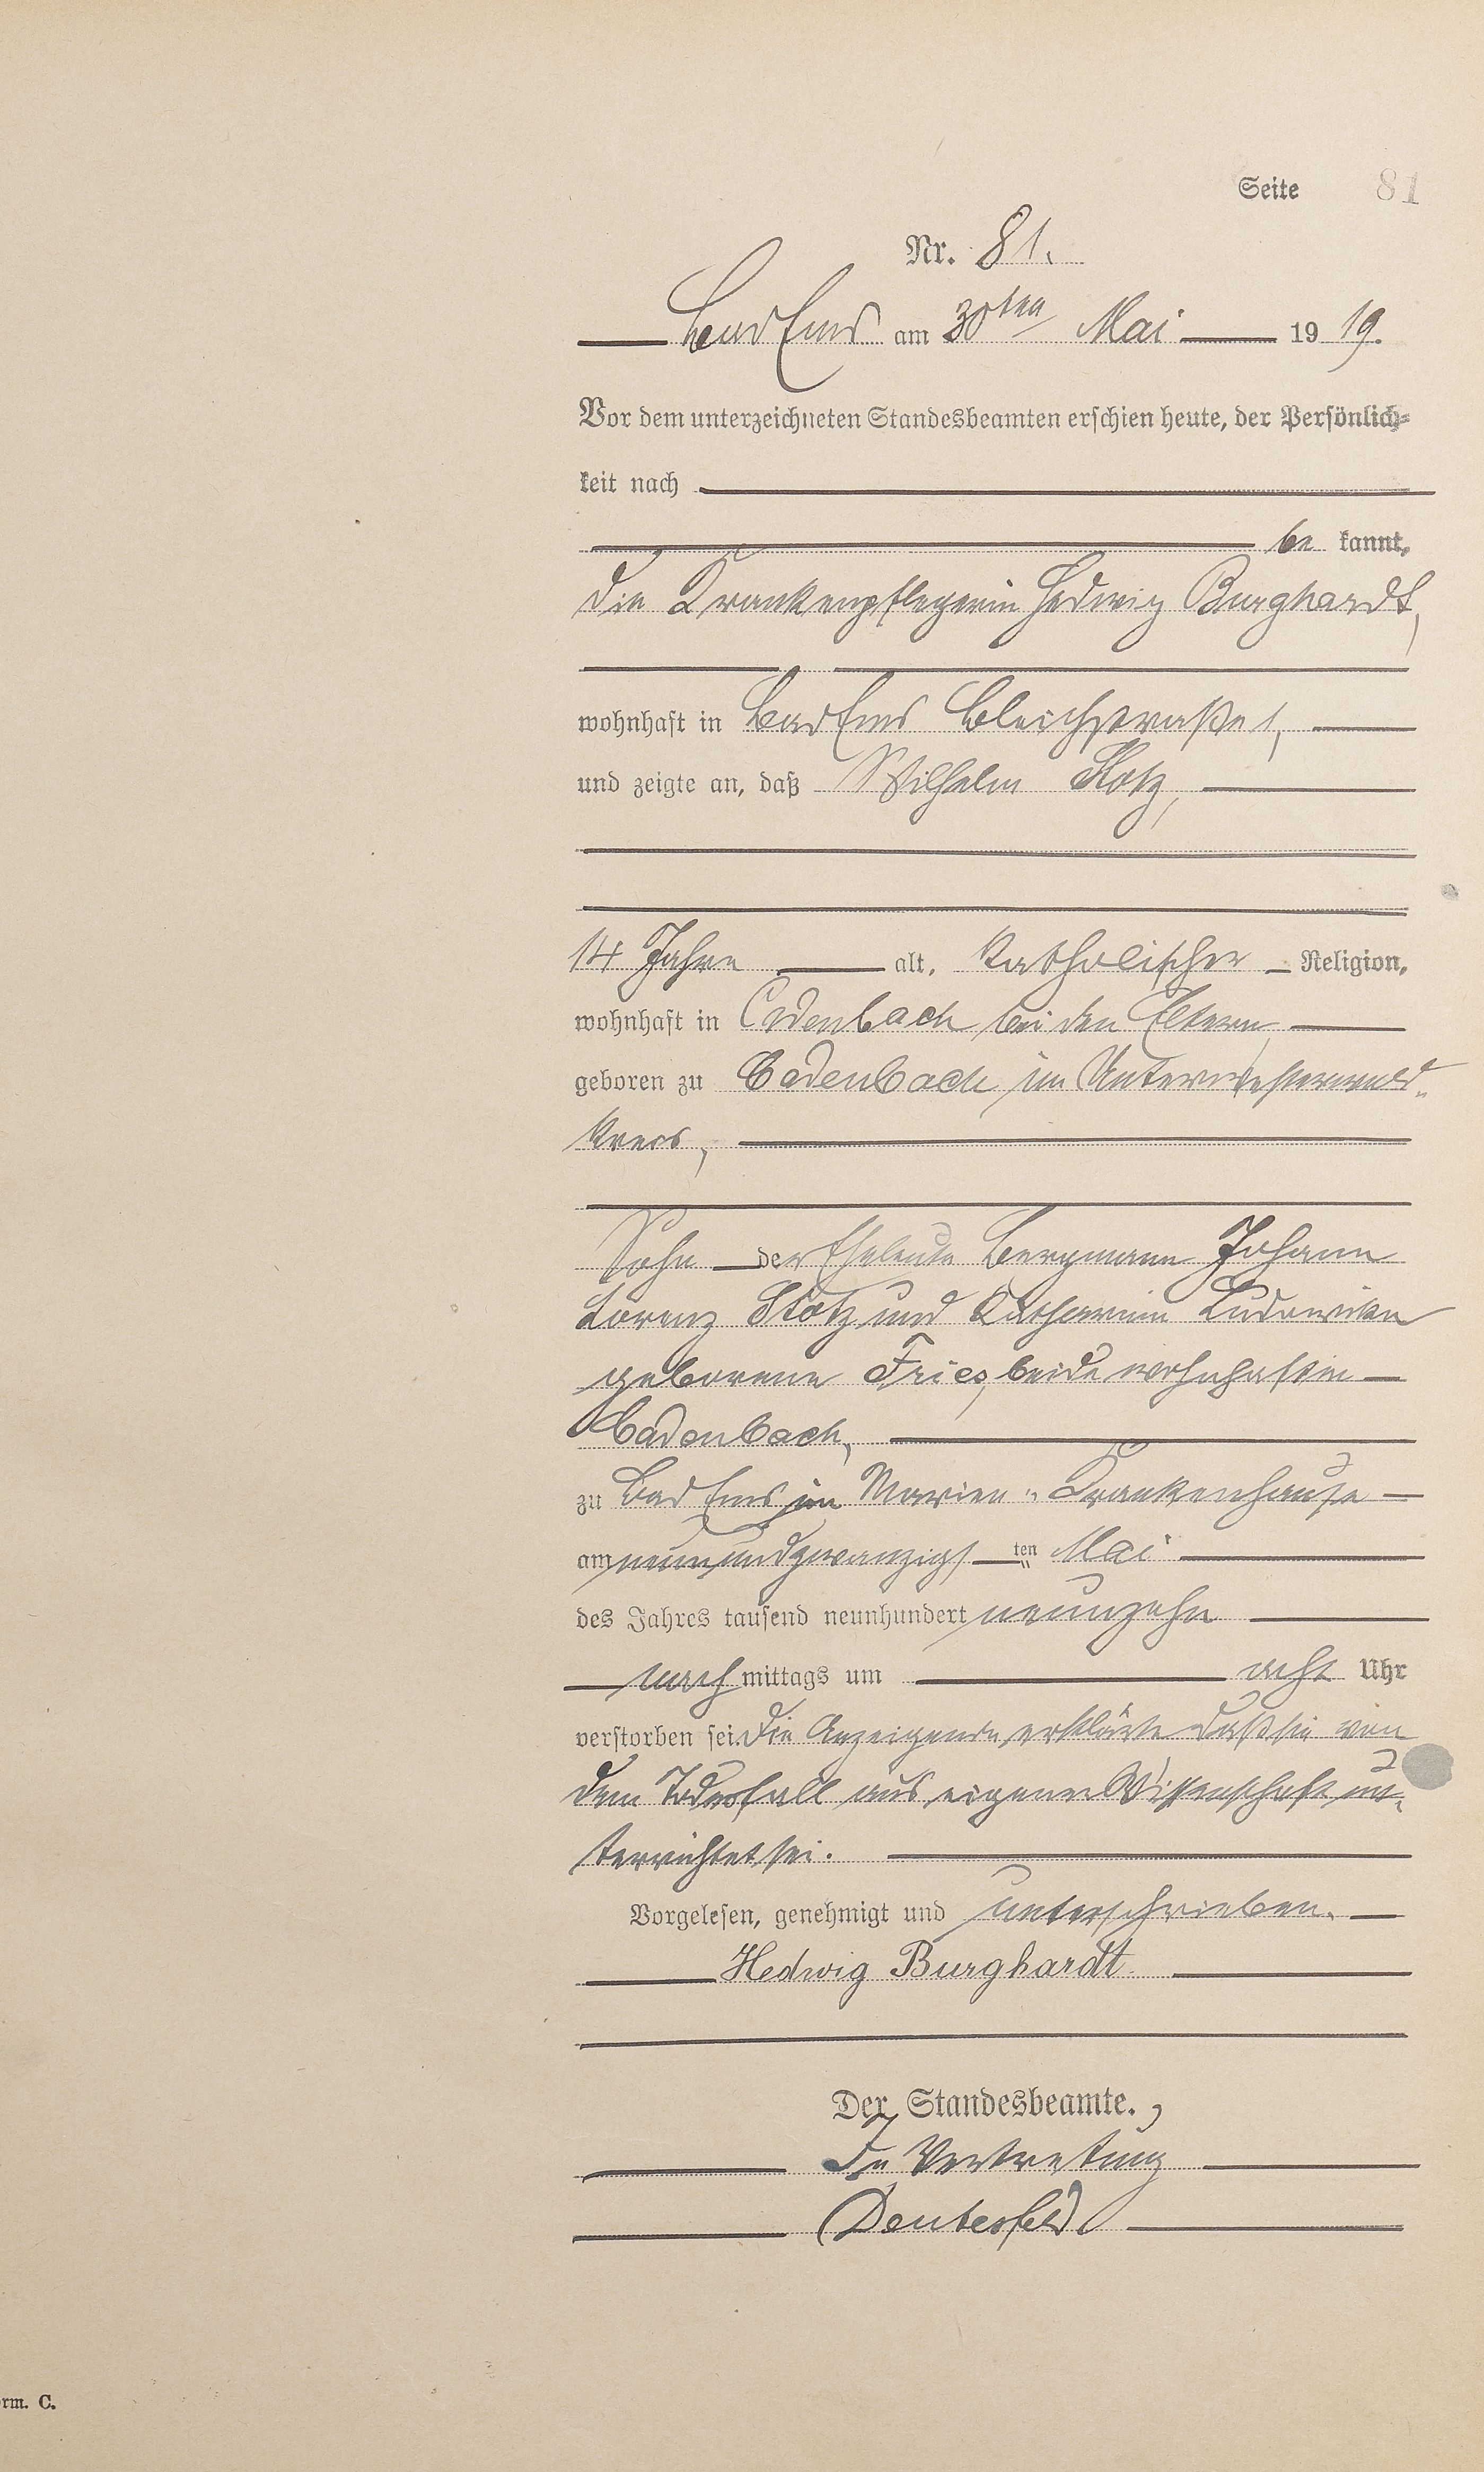 Seite 81
Nr. 81.
Bad Ems am 30ten Mai 1919.
Vor dem unterzeichneten Standesbeamten erschien heute, der Persönlich-
keit nach
be kannt,
die Krankenpflegerin Hedwig Burghardt,
wohnhaft in Bad Ems Bleichstraße 1,
und zeigte an, daß Wilhelm Stotz,
14 Jahre alt, katholischer Religion,
wohnhaft in Cadenbach bei den Eltern,
geboren zu Cadenbach im Unterwesterwald-
kreis,
Sohn der Eheleute Bergmann Johann
Lorenz Stotz und Katharina Ludowika
geborene Fries, beide wohnhaft in
Cadenbach,
zu Bad Ems im Marien-Krankenhause
am neunundzwanzigsten Mai
des Jahres tausend neunhundert neunzehn
nach mittags um acht Uhr
verstorben sei. Die Anzeigende erklärte daß sie von
dem Todesfall aus eigener Wissenschaft un-
terrichtet sei.
Vorgelesen, genehmigt und unterschrieben.
Hedwig Burghardt
Der Standesbeamte.
In Vertretung
rm. C.